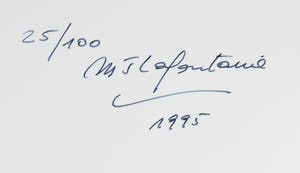 25/100
MJ Lafontaine
1995